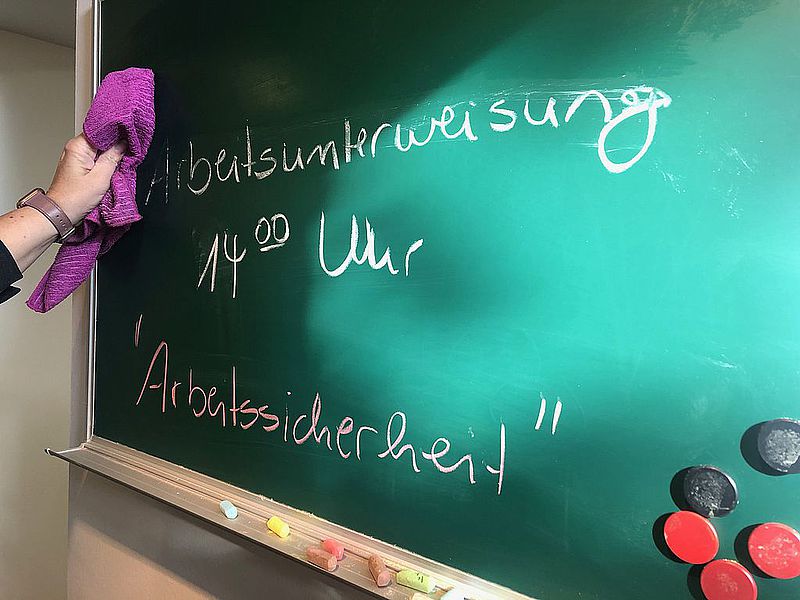 Arbeitsunterweisung
14⁰⁰ Uhr
"Arbeitssicherheit"